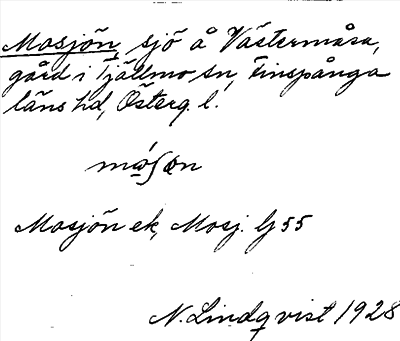 Mosjön, sjö å Västermåsa,
gård i Tjällmo sn, Finspånga
läns hd, Österg. l.
Mosjön ek, Mosj. lj 55
N. Lindqvist 1928